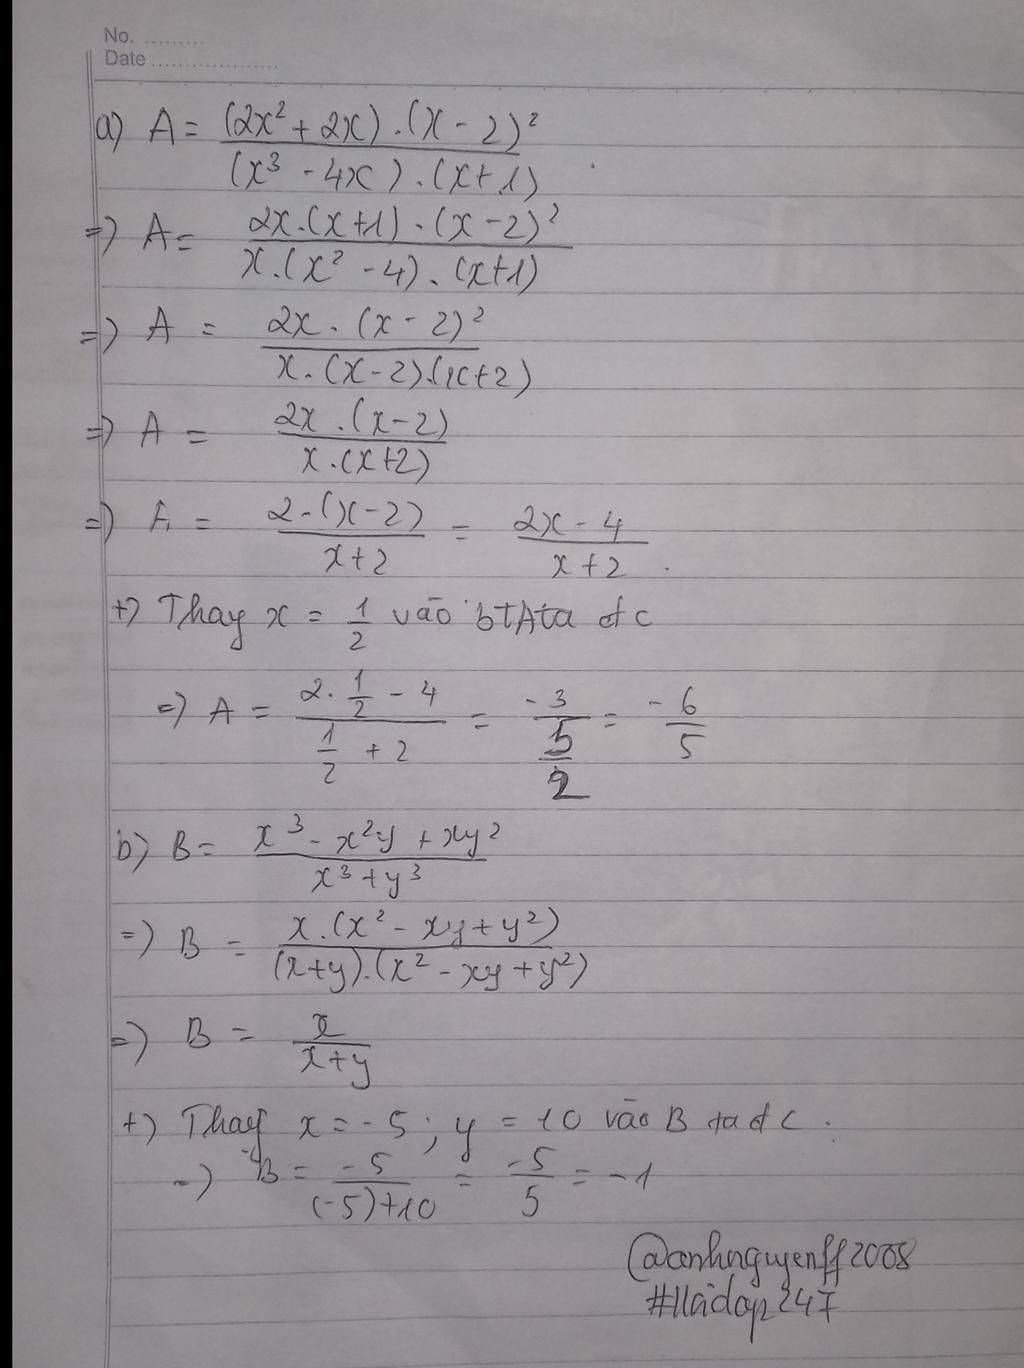 No. .........
Date ...................
a) A = (2x² + 2x) . (x - 2)² / (x³ - 4x) . (x + 1)
=) A = 2x.(x+1) . (x - 2)² / x.(x² - 4) . (x+1)
=) A = 2x . (x - 2)² / x.(x-2).(x+2)
=) A = 2x .(x-2) / x.(x+2)
=) A = 2.(x-2) / x+2 = 2x - 4 / x+2 .
+) Thay x = 1/2 vào btA ta đc
=) A = 2. 1/2 - 4 / 1/2 + 2 = -3 / 5/2 = - 6/5
b) B = x³ - x²y + xy² / x³ + y³
=) B = x.(x² - xy + y²) / (x+y).(x² - xy + y²)
=) B = x / x+y
+) Thay x = -5 ; y = 10 vào B ta đc .
=) B = -5 / (-5)+10 = -5 / 5 = -1
@anhnguyenff2008
#Hoidap247